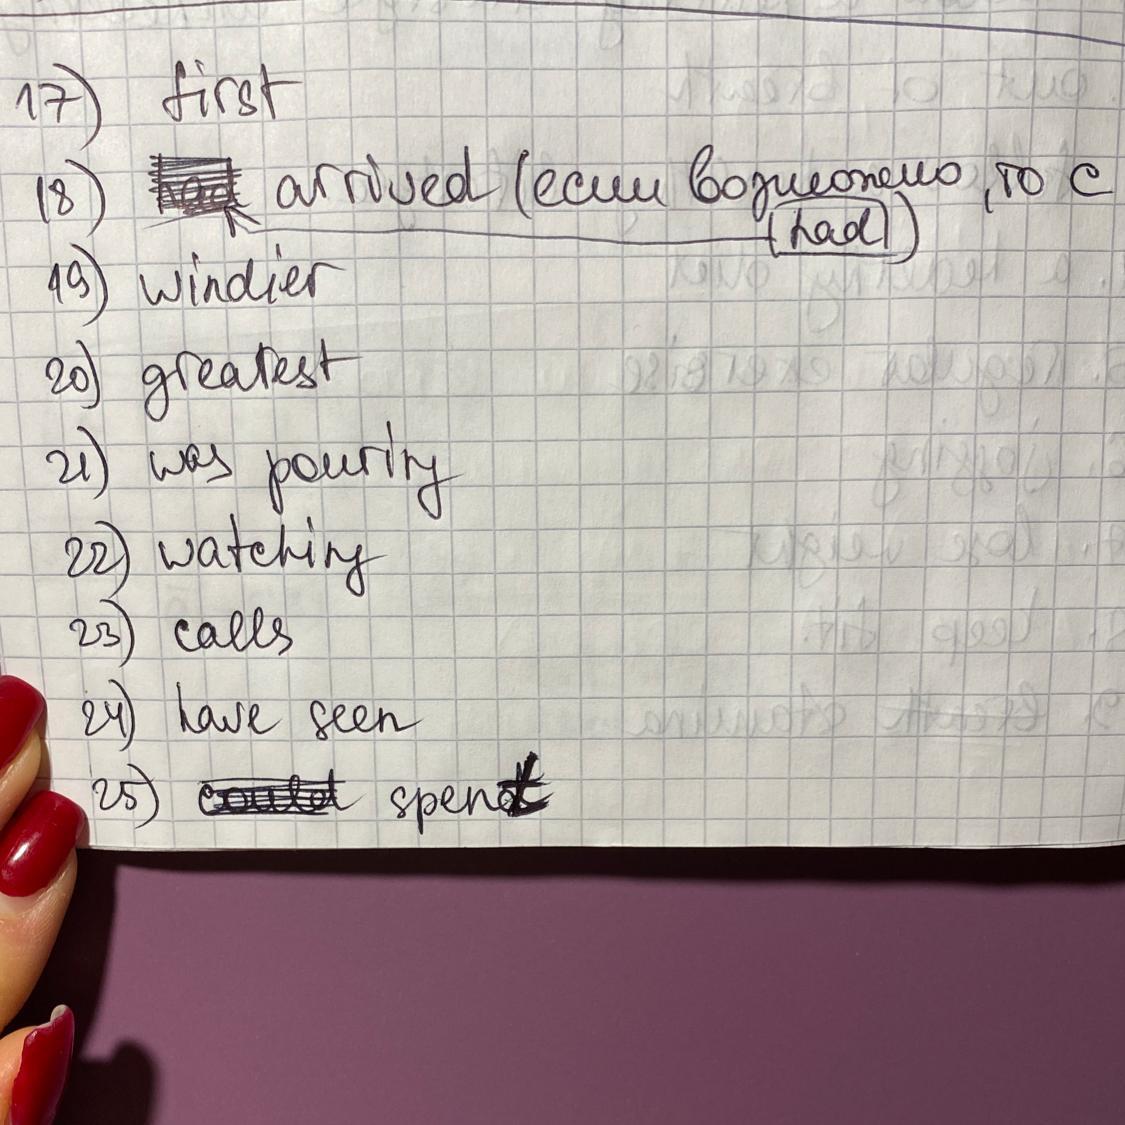 17) first
18) arrived (если возможно, то с
(had))
19) windier
20) greatest
21) was pouring
22) watching
23) calls
24) have seen
25) could spent